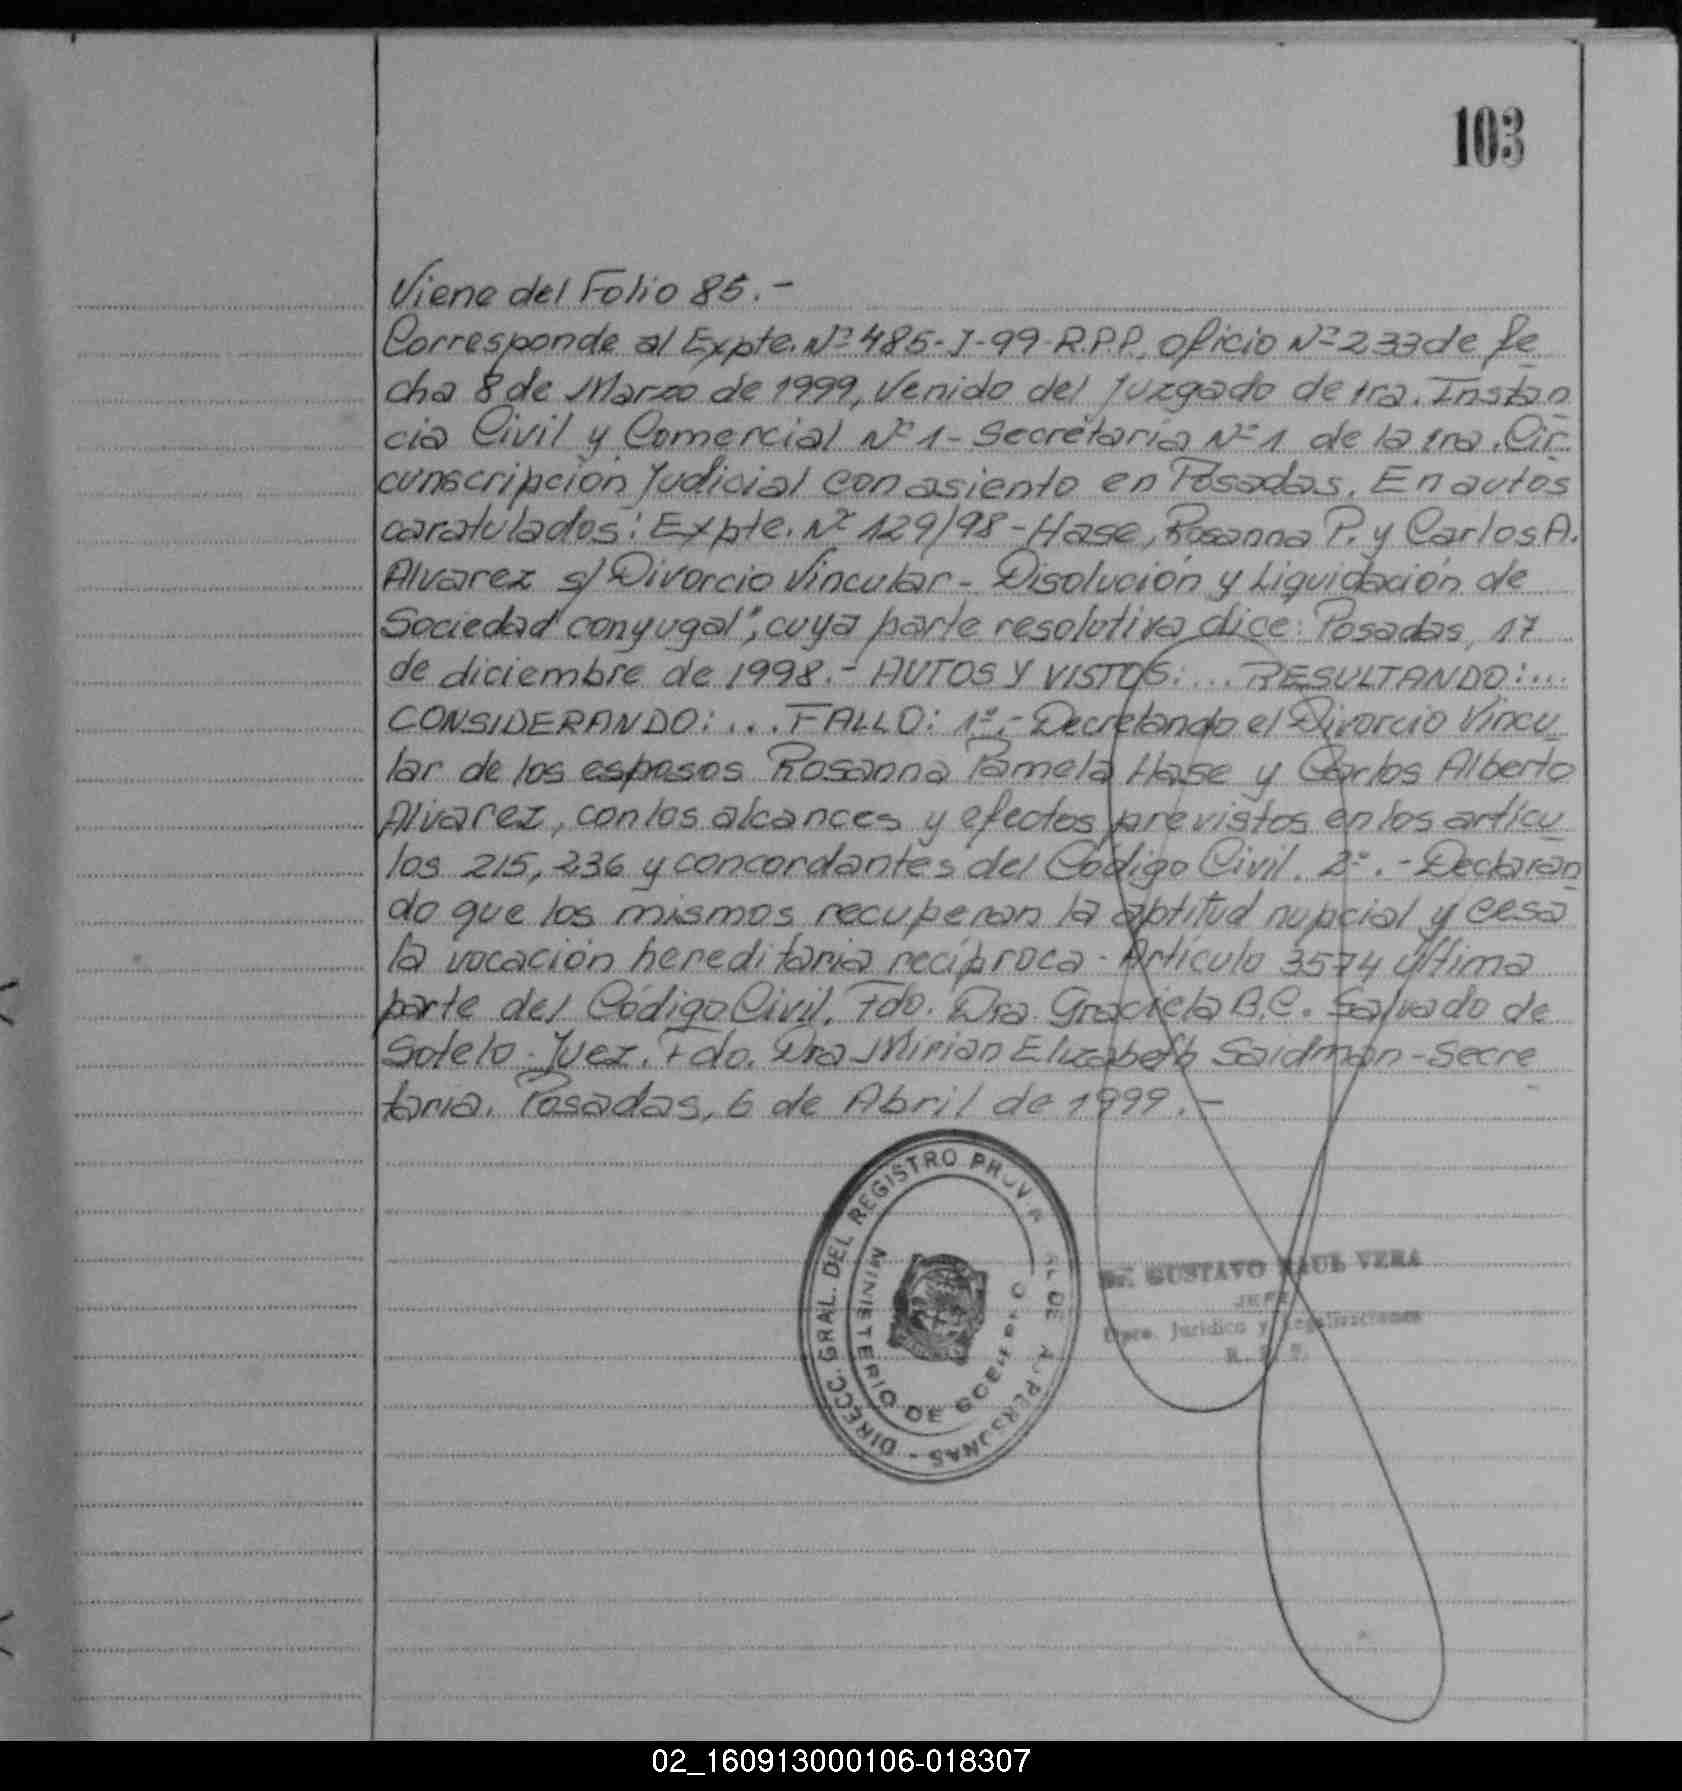 103
Viene del Folio 85.-
Corresponde al Expte. Nº 485-J-99-R.P.P. oficio Nº 233 de fe
cha 8 de Marzo de 1999, Venido del Juzgado de 1ra. Instan
cia Civil y Comercial Nº 1 - Secretaría Nº 1 de la 1ra. Cir
cunscripción Judicial con asiento en Posadas. En autos
caratulados: Expte. Nº 129/98 - Hase, Rosanna P. y Carlos A.
Alvarez s/ Divorcio Vincular - Disolución y Liquidación de
Sociedad conyugal", cuya parte resolutiva dice: Posadas, 17
de diciembre de 1998.- AUTOS Y VISTOS: ... RESULTANDO: ...
CONSIDERANDO: ... FALLO: 1º.- Decretando el Divorcio Vincu
lar de los esposos Rosanna Pamela Hase y Carlos Alberto
Alvarez, con los alcances y efectos previstos en los artícu
los 215, 236 y concordantes del Código Civil. 2º.- Declaran
do que los mismos recuperan la aptitud nupcial y cesa
la vocación hereditaria recíproca - Artículo 3574 última
parte del Código Civil. Fdo. Dra. Graciela B.C. Salvado de
Sotelo - Juez. Fdo. Dra Mirian Elizabeth Saidman - Secre
taria. Posadas, 6 de Abril de 1999.-
DIRECC. GRAL. DEL REGISTRO PROV
AL DE PERSONAS -
MINISTERIO DE GOBIERNO
Dr. GUSTAVO RAUL VERA
JEFE
Dpto. Jurídico y Legalizaciones
R. P. P.
02_160913000106-018307